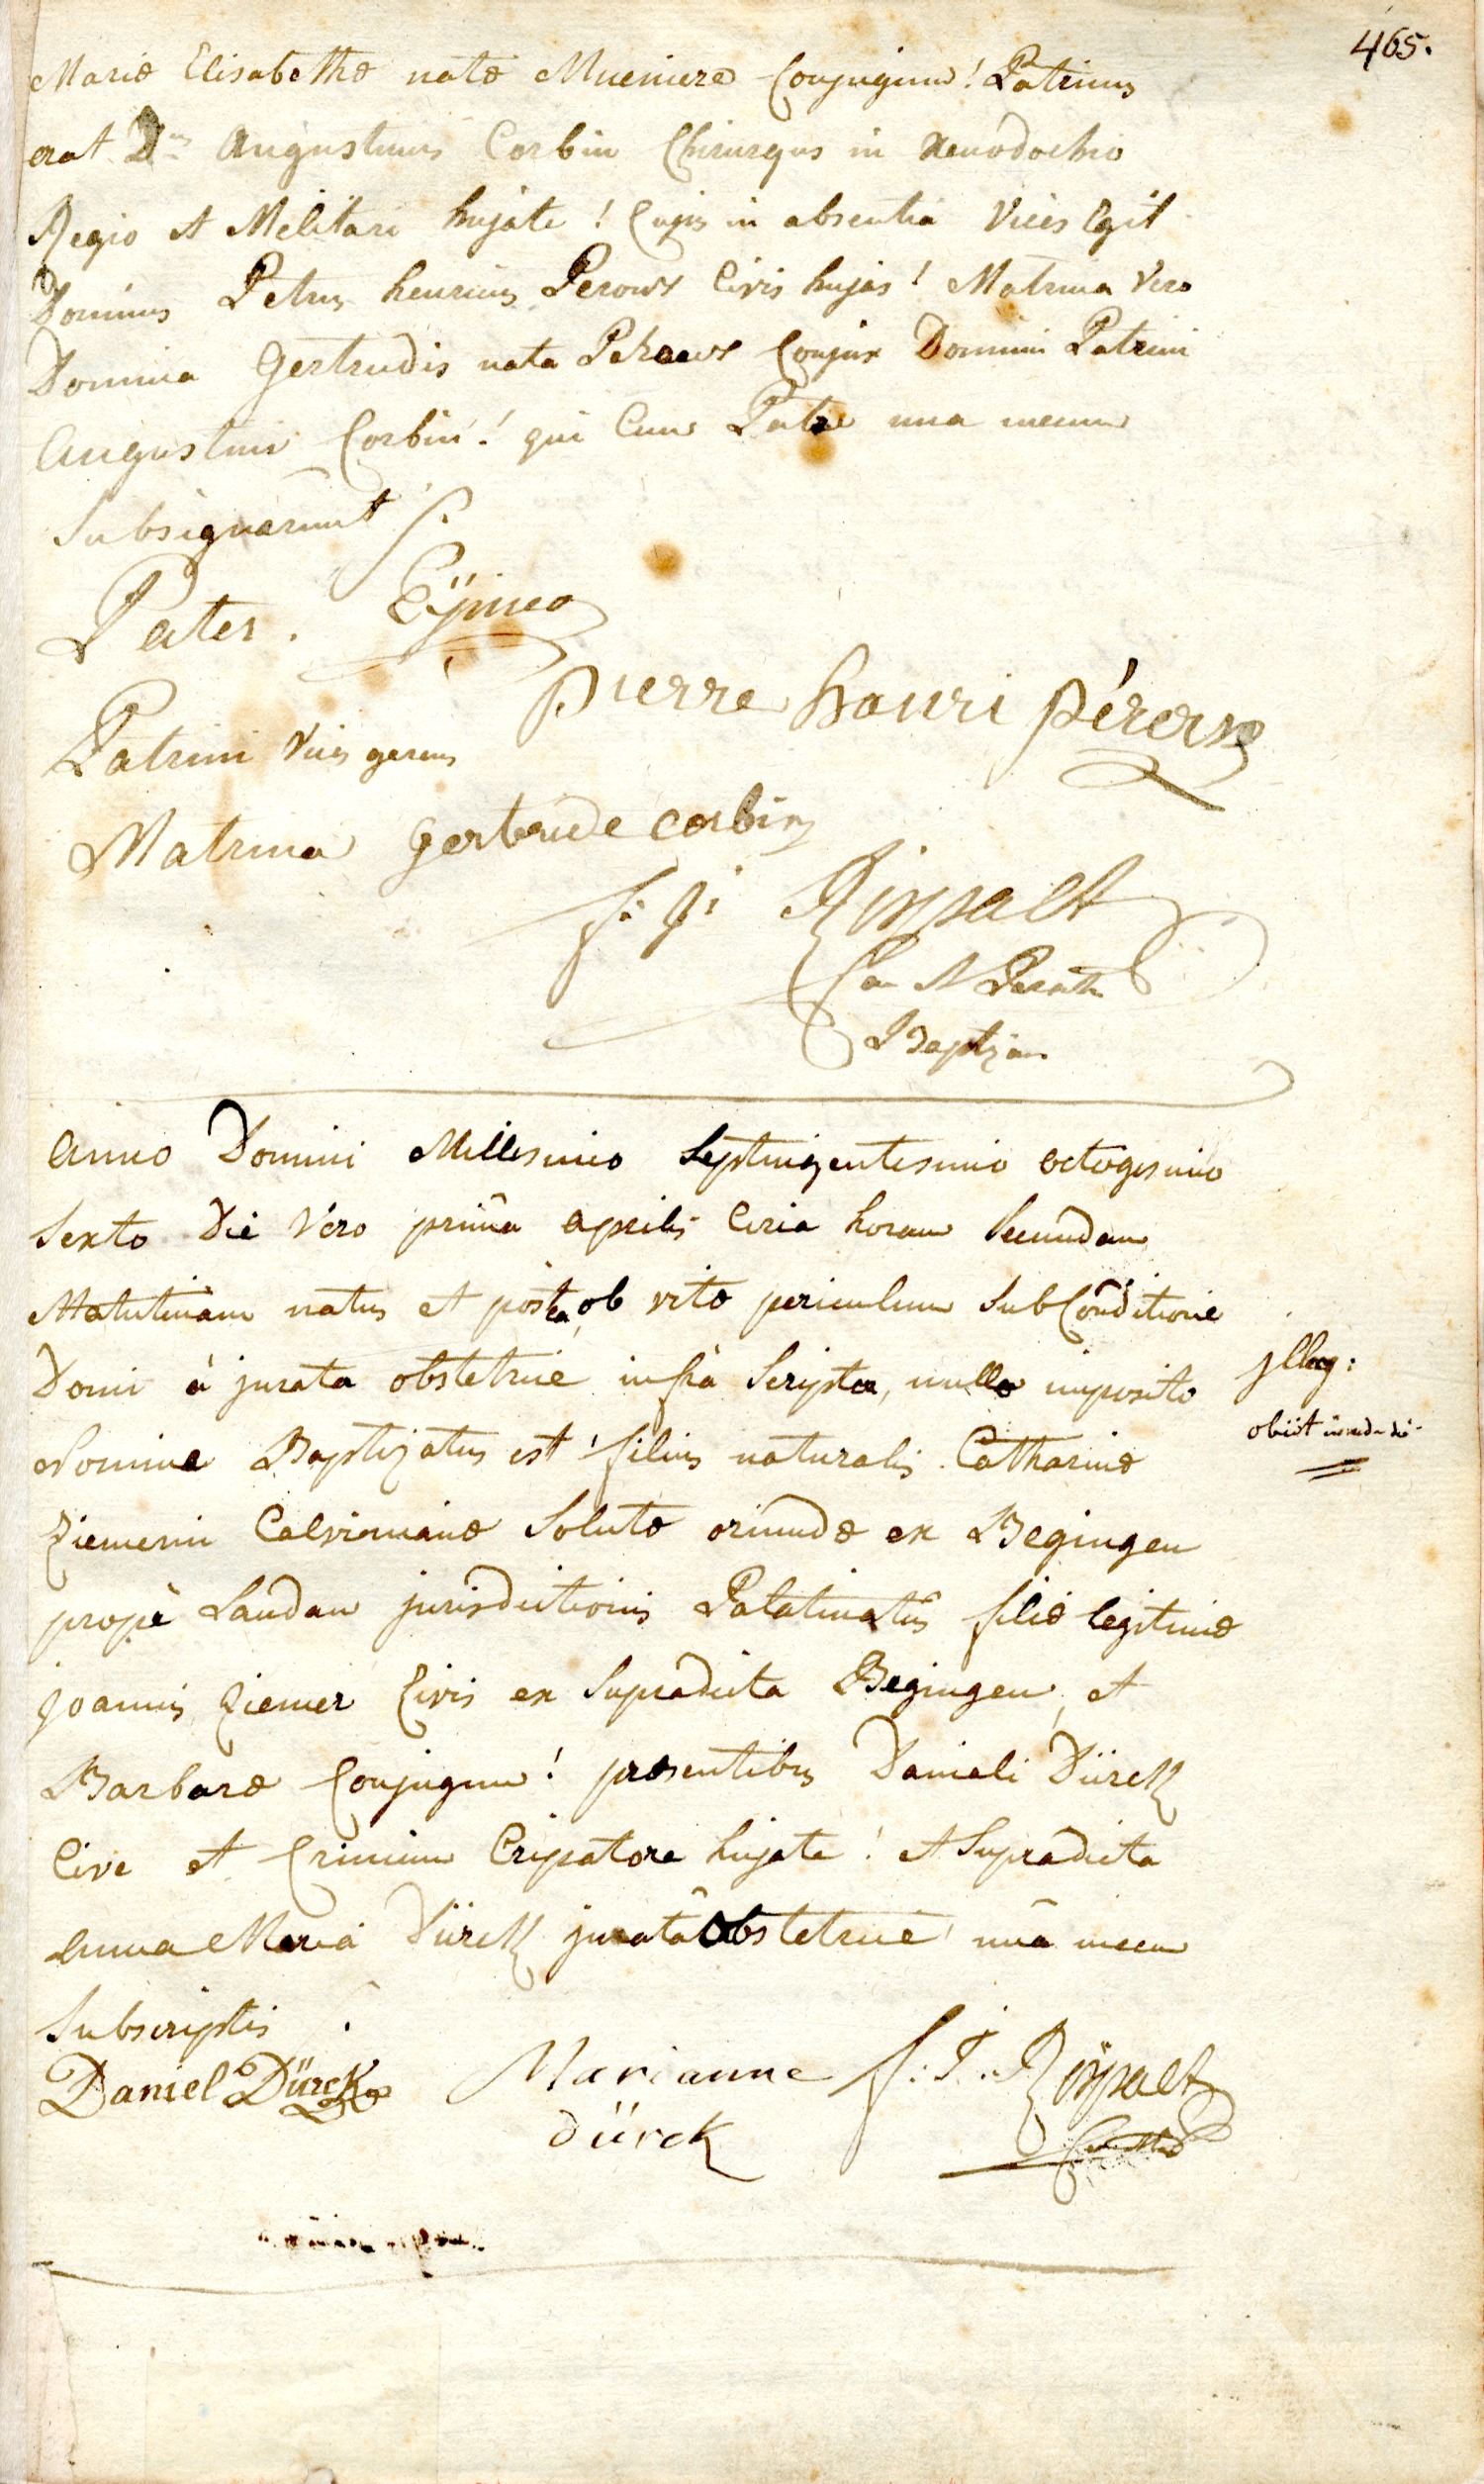 465.
Mariæ Elisabethæ natæ Mueniere Conjugum! Patrinus
erat D:nus Augustinus Corbin Chirurgus in Xenodochio
Regio et Militari hujate! Cujus in absentia Vices Egit
Dominus Petrus henricus Peroux Civis hujas! Matrina Vero
Domina Gertrudis nata Conjux Domini Patrini
Augustini Corbin! qui Cum Patre una mecum
Subsignarunt
Pater.
Pierre hanri
Patrini Vices gerens
Matrina gertrude corbin
Baptizans
Anno Domini Millesimo Septuigentesimo octogesimo
Sexto Die Vero primâ aprilis Circa horam Secundam
Matutinam natus et postea, ob vitæ periculum Sub Conditione
Domi à jurata obstetrice infrà Scripta, nullo imposito
jlleg:
Nomine Baptizatus est! filius naturalis Catharinæ
obiit eâdem die
Ziemerin Calvinianæ Solutæ oriundæ ex Begingen
propè Landau jurisdictionis Palatinatûs filiæ legitimæ
Joannis Ziemer Civis ex Supradicta Begingen, et
Barbaræ Conjugum! præsentibus Danieli Dürck
Cive et Crinium Crispatore hujate! et Supradicta
Anna Maria Dürck juratâ Obstetrice unâ mecum
Subscriptis
Daniel Dürck Marianne
dürck